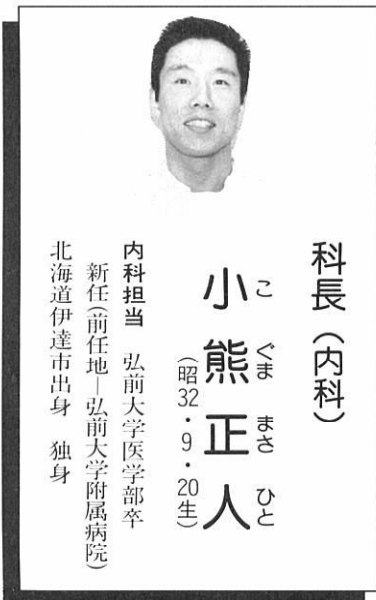 科長（内科）
こ ぐま まさ ひと
小熊正人
（昭32・9・20生）
内科担当　弘前大学医学部卒
新任（前任地—弘前大学附属病院）
北海道伊達市出身　独身